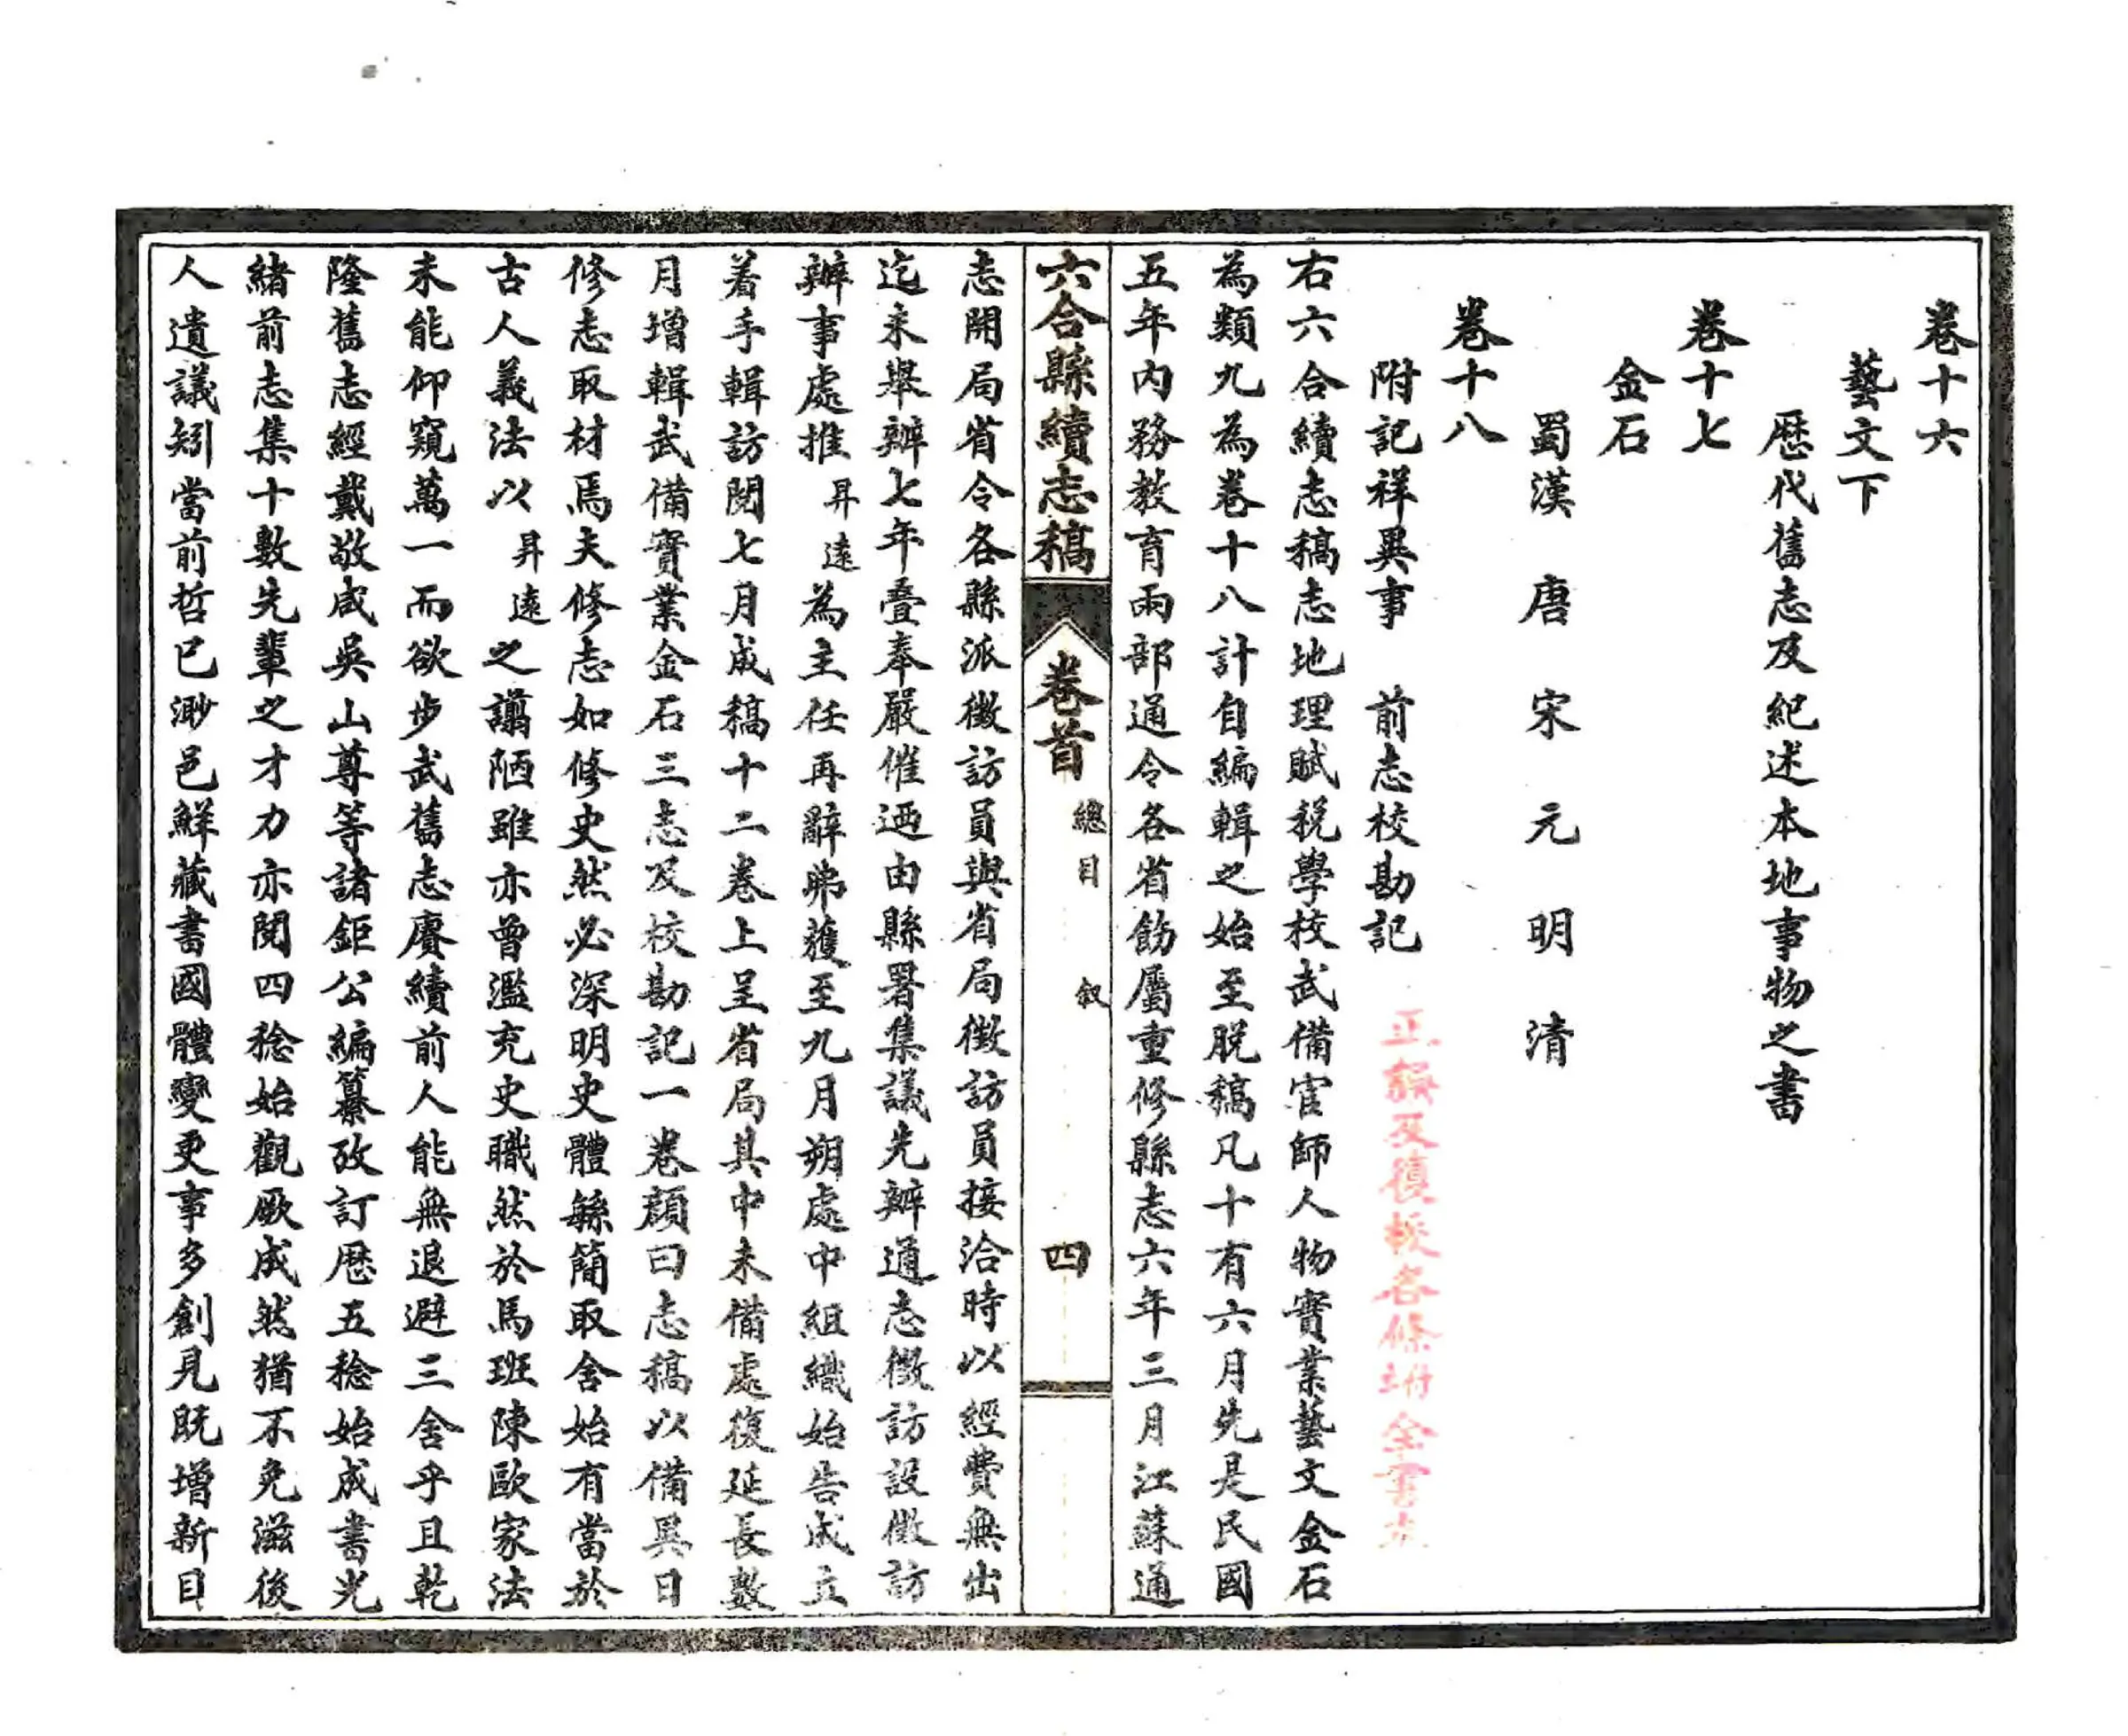 卷十六
藝文下
歴代舊志及紀述本地事物之書
卷十七
金石
蜀漢 唐 宋 元 明 清
卷十八
附記祥異事 前志校勘記 正誤及復校各條坿全書末
右六合續志稿志地理賦税學校武備官師人物實業藝文金石
為類九為卷十八計自編輯之始至脱稿凡十有六月先是民國
五年內務教育兩部通令各省飭屬重修縣志六年三月江蘇通
六合縣續志稿 卷首 總目 叙 四
志開局省令各縣派徵訪員與省局徵訪員接洽時以經費無出
迄未舉辦七年疊奉嚴催迺由縣署集議先辦通志徵訪設徵訪
辦事處推昇遠為主任再辭弗獲至九月朔處中組織始告成立
着手輯訪閱七月成稿十二卷上呈省局其中未備處復延長數
月增輯武備實業金石三志及校勘記一卷顏曰志稿以備異日
修志取材焉夫修志如修史然必深明史體緐簡取舍始有當於
古人義法以昇遠之謭陋雖亦曾濫充史職然於馬班陳歐家法
未能仰窺萬一而欲步武舊志賡續前人能無退避三舍乎且乾
隆舊志經戴敬咸吳山尊等諸鉅公編纂攷訂歴五稔始成書光
緒前志集十數先輩之才力亦閱四稔始觀厥成然猶不免滋後
人遺議矧當前哲已渺邑鮮藏書國體變更事多創見既增新目